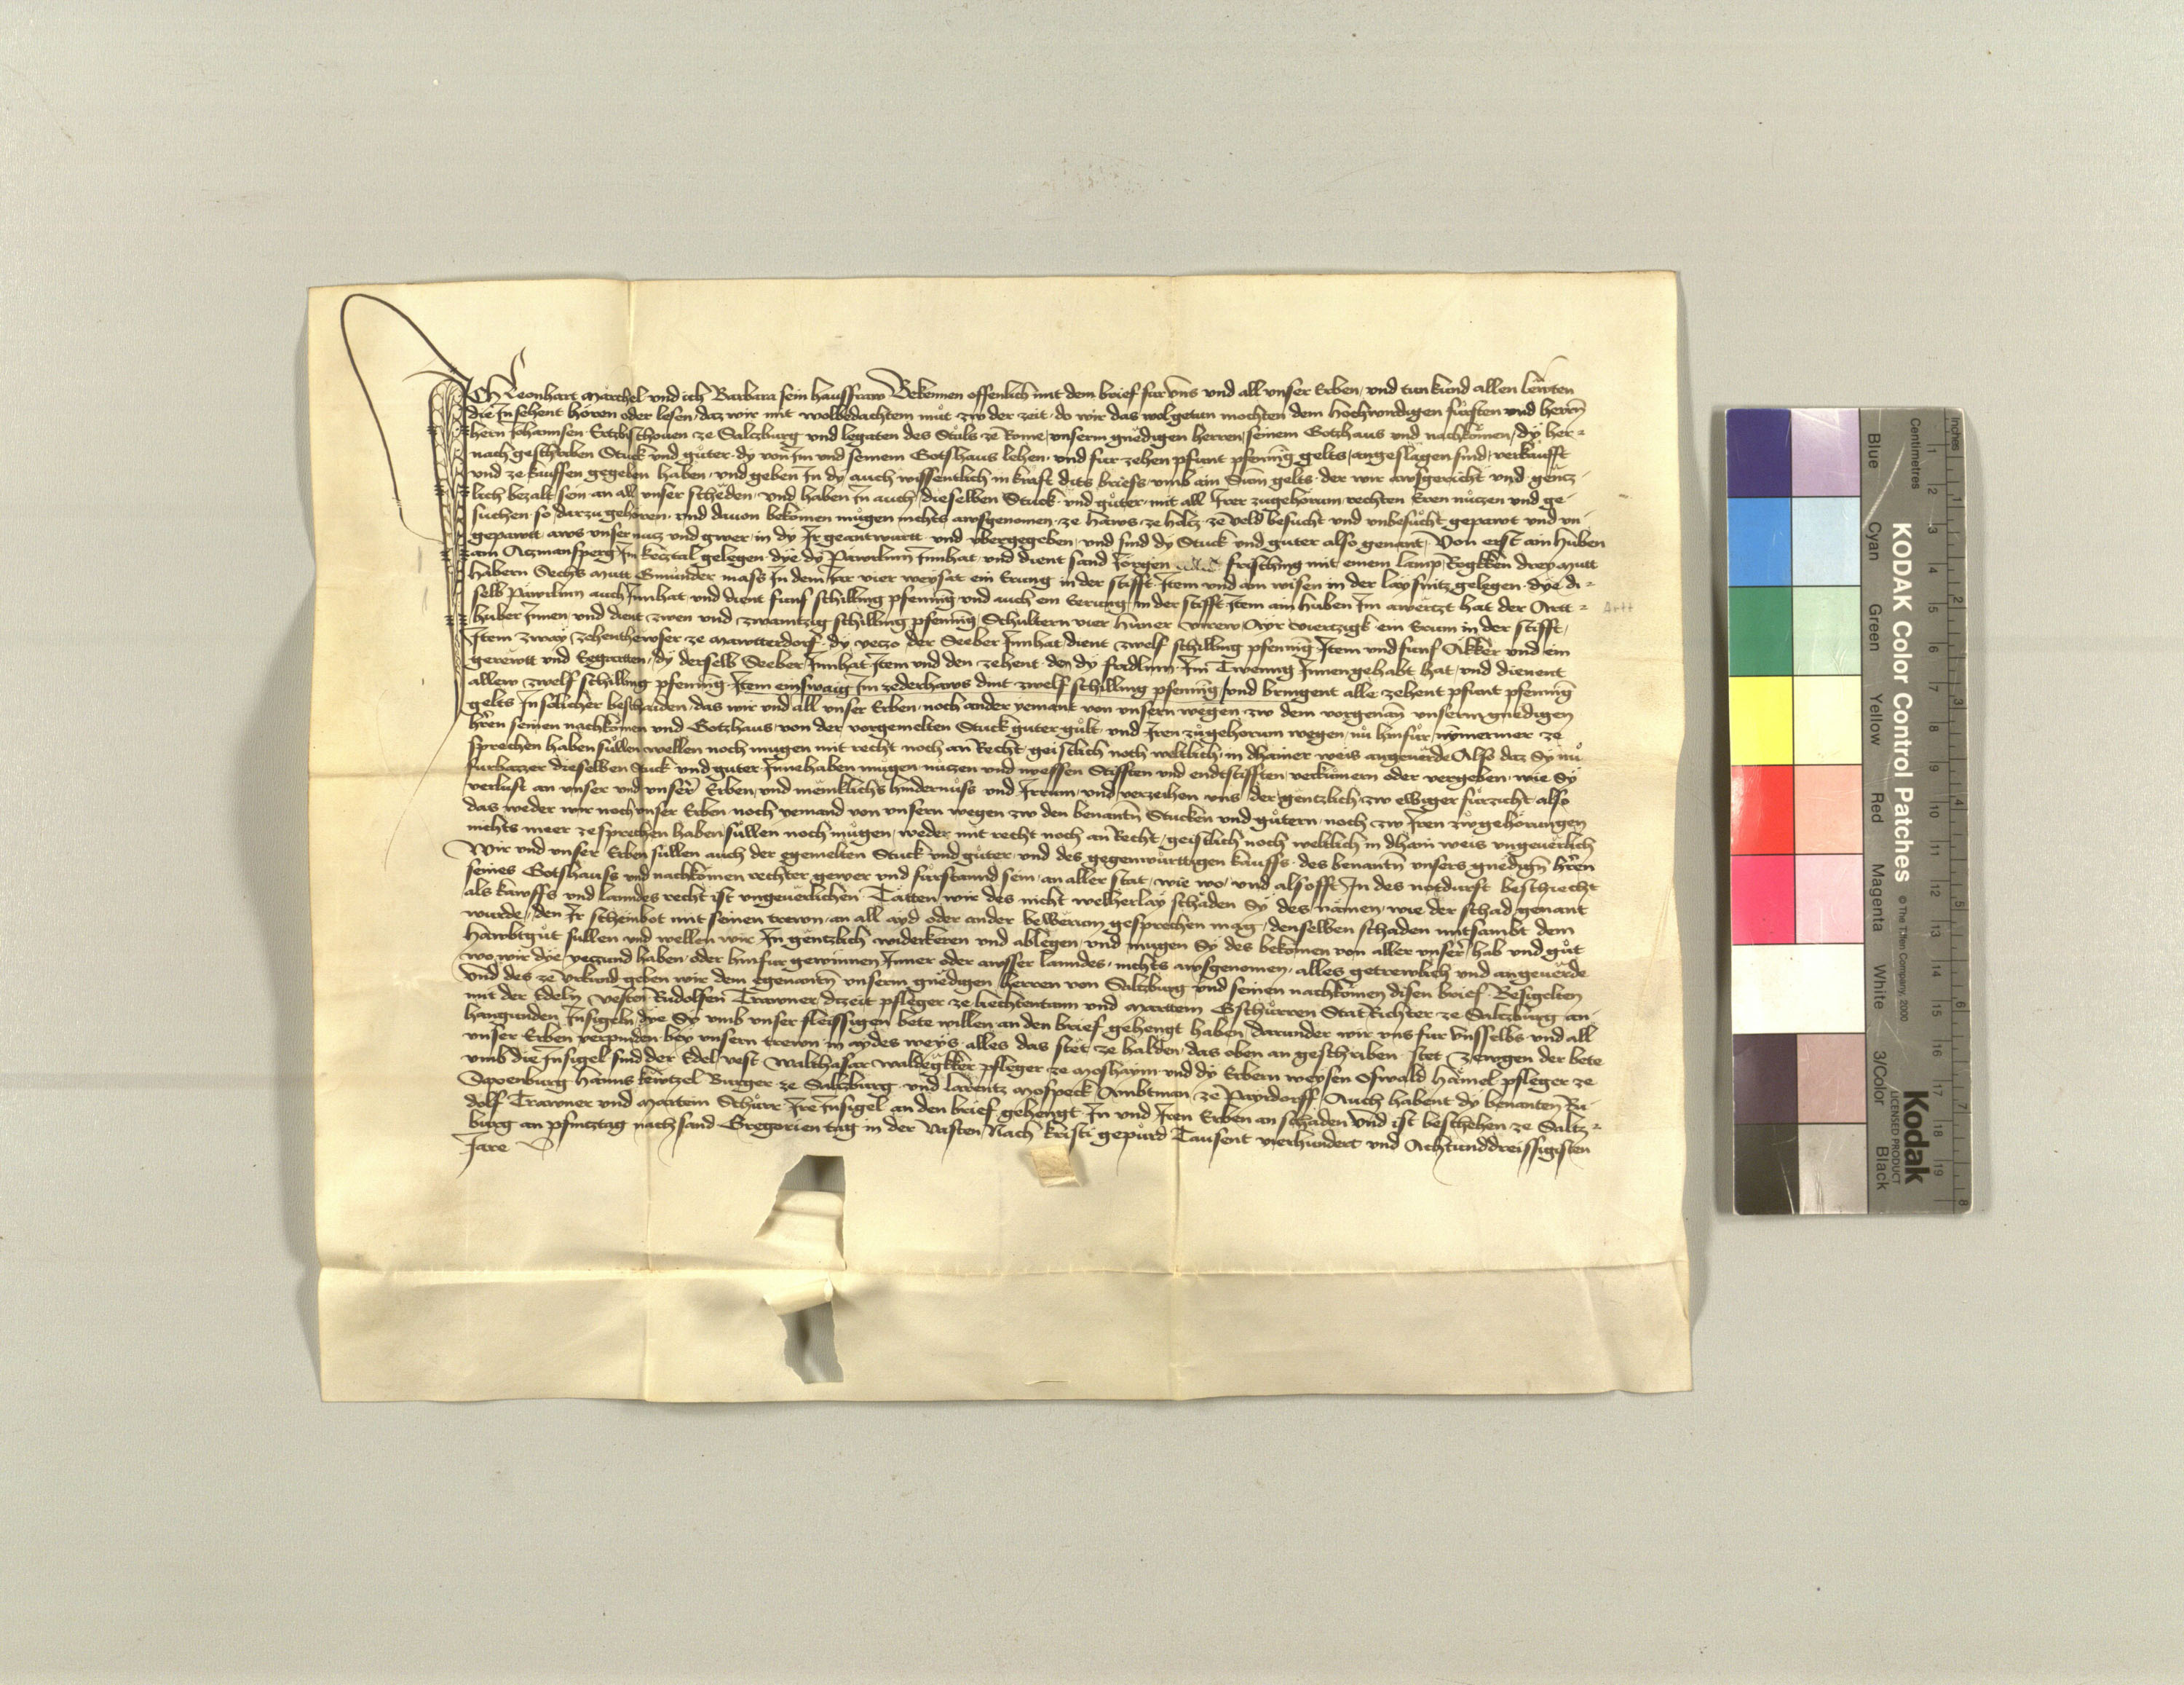 Ich Leonhart Marchel und ich Barbara sein hausfraw Bekennen offenlich mit dem brief fur uns und all unser Erben, und tun kund allen lewten
die In sehent hören oder lesen, daz wir mit wolbedachtem mut zw der zeit, do wir das wolgetun mochten dem Hochwirdigen fürsten und herrn
hern Johannsen Ertzbischouen ze Salczburg und legaten des Stuls ze Rome, unserm gnedigen herren, seinem Gotzhaus und nachkomen, dy her-
nach geschriben Stuck und güter, dy von Im und seinem Gotshaus lehen, und fur zehen pfunt pfening gelts, angeslagen sind, verkaufft
und ze kauffen gegeben haben, und geben In dy auch wissentlich in kraft dits briefs, umb ain Sum gelts, der wir ausgericht und gencz-
lich bezalt sein an all unser scheden, und haben In auch dieselben Stuck und güter, mit all Irer zugehorum, rechten Eren nuczen und ge-
suchen, so darzu gehoren, und dauon bekomen mugen nichts ausgenomen, ze haws ze holcz ze veld besucht und unbesucht gepawt und un-
gepawtt, aws unser nucz und gwer, in dy Ir geantwurtt und ubergegeben, und sind dy Stuck und guter also genant, Von erst ain huben
am Aczmansperg In kecztal gelegen, dye dy Pawrlinn Innhat und dient sand Jörgen frisching mit einem lamp, Rogkken drey mutt
habern Sechs mutt Gmünder mass In dem Iar vier weysat ein Erung in der stifft, Item und am wisen in der laysnitz gelegen, dye di-
selb Pawrlinn auch Innhat und dient funf schilling pfening und auch ein Eerung in der stifft Item ain huben Im awertzt hat der Artt-
huber Innen und dient zwen und zwainczig schilling pfening, Schultern vier hüner Ayr viertzigk ein Erum in der stifft,
Item zway zehenthewser ze Mawtterdorf, dy yeczo der Seeber Innhat dient zwelf schilling pfening, Item und funf Akker und ein
gerewtt und Eegartten, dy derselb Seeber Innhat Item und den zehent, den dy Im Tweng Innengehabt hat, und dienent
allew zwelf schilling pfening, Item einswaig Im zederhaws dint zwelf schilling pfening, und bringent alle zehent pfunt pfening
gelts In solicher bescheiden, das wir und all unser Erben, noch ander yemant von unsern wegen zw dem vorgenan unserm gnedigen
hren seinen nachkomen und Gotzhaus, von der vorgemelten Stuck guter gult, und Iren zugehorum wegen, nu hinfur nymermer ze
sprechen haben sullen wellen noch mugen mit recht noch an Recht, geistlich noch weltlich, in dhainer weis angeuerde Also daz Sy nu
furbatzer dieselben Stuck und guter, Innehaben mugen nuczen und niessen Stifften und endtstifften verkumern oder vergeben, wie Sy
verlust an unser und unser Erben, und meniklichs hindernüss und Irrum, und verzeihen uns der genczlich zw ewiger fürzicht also
das weder wir noch unser Erben noch yemand von unsern wegen zw den benantn Stucken und gutern, noch zw Iren zugehorungen
nichts meer ze sprechen haben sullen noch mugen, weder mit recht noch an Recht, geistlich noch weltlich in dhain weis ungeuerlich
Wir und unser Erben sullen auch der egemelten Stuck und güter, und des gegenwürttigen kauffs, des benantn unsers gnedign hren
seines Gotshauss und nachkomen rechter gewer und fürstannd sein, an aller stat, wie wo, und alsofft In des notdurft beschiecht
als kawffs und lanndes recht ist ungeuerlichen Tätten wir des nicht welherlay schaden Sy des nämen, wie der schad genant
wurde, den Ir scheinbot mit seinen trewn, an all ayd oder ander bewerum gesprechen mag, denselben schaden mitsambt dem
hawbtgut sullen und wellen wir In genczlich widerkeren und ablegen, und mugen Sy des bekomen von aller unser hab und gut
wo wir dye yeczund haben, oder hinfur gewinnen Inner oder ausser lanndes, nichts ausgenomen, alles getrewlich und angeuerde
Und des ze urkund geben wir dem egenantn unserm gnedigen herren von Salczburg und seinen nachkomen disen brief, Besigelten
mit der Edeln vesten Rudolfen Trawner, dizeit pfleger ze liechtentann und Marttein Gschürren Stat Richter ze Salczburg an-
hangunden Insigeln dye Sy umb unser fleissigen bete willen an den brief gehengt haben, darunder wir uns fur unsselbs und all
unser Erben verpinden, bey unsern trewn in aydes weys, alles das stet ze halden, das oben an geschriben stet Zewgen der bete
umb die Insigel sind der Edel vest Walthasar Waldegkker pfleger ze Moshaym und dy Erbern weysen Oswald Hämel pfleger ze
Saxenburg Hanns kewtzel Burger ze Salczburg und larentz Mospeck Ambtman ze Payrdorff, Auch habent dy benanten Ru-
dolf Trawner und Martein Schürr Ire Insigel an den brief gehengt In und Iren Erben an schaden Und ist beschehen ze Saltz-
burg an pfincztag nach sand Gregorien tag in der Vasten, Nach kristi gepurd Tausent vierhundert und Achtunddreissigisten
Jare
Artt
KODAK Color Control Patches © The Tiffen Company, 2000
Kodak
LICENSED PRODUCT
Blue Cyan Green Yellow Red Magenta White 3/Color Black
Inches 1 2 3 4 5 6 7 8
Centimetres 1 2 3 4 5 6 7 8 9 10 11 12 13 14 15 16 17 18 19